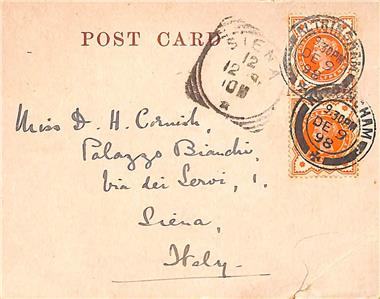 POST CARD
SIENA
12
12 98
10M
ALTRINCHAM
9.30PM
DE 9
98
ALTRINCHAM
9.30PM
DE 9
98
Miss D. H. Cornish,
Palazzo Bianchi,
Via dei Servi, 1.
Siena,
Italy.